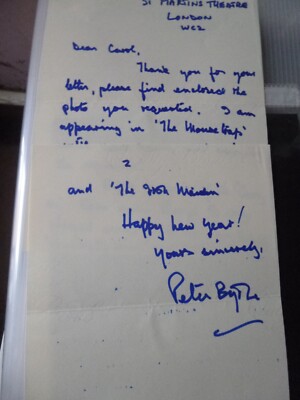 St MARTINS THEATRE
LONDON
WC2
Dear Carol,
Thank you for your
letter, please find enclosed the
photo you requested. I am
appearing in 'The Mousetrap'
2
and 'The Irish
Happy new year!
Yours sincerely,
Peter Byrne